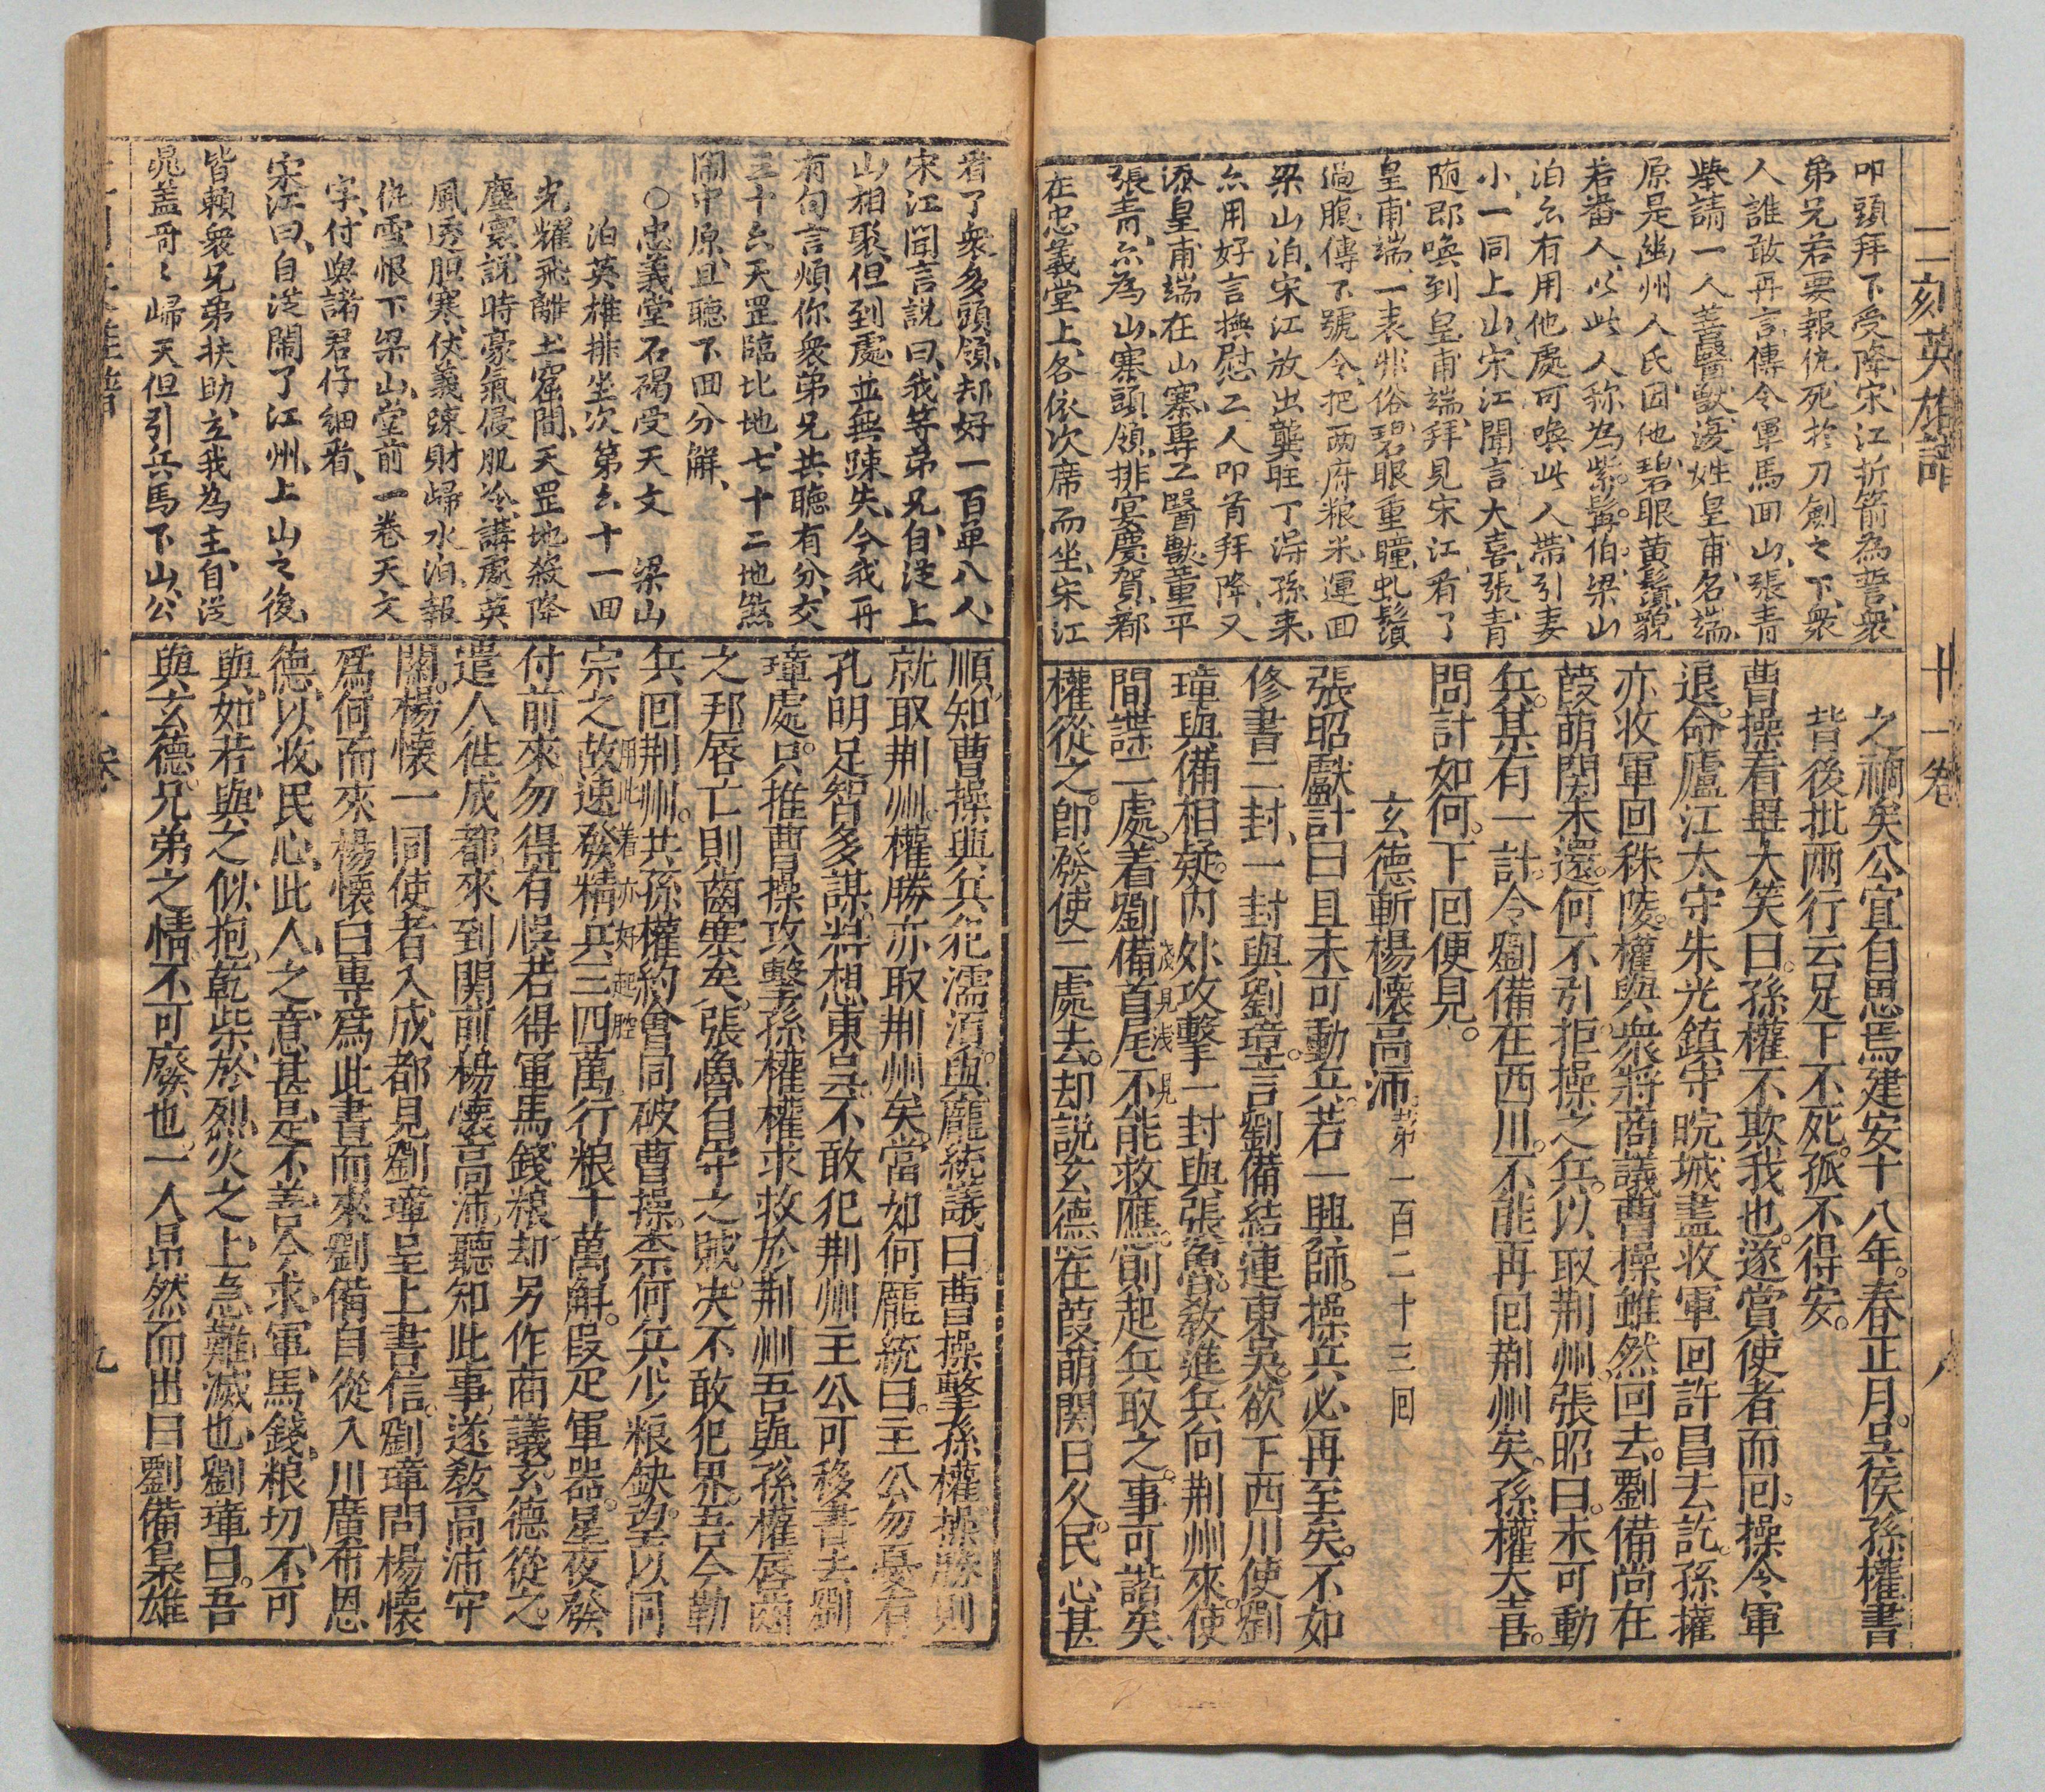 二刻英雄譜
十一卷
八
叩頭拜下受降宋江折箭為誓衆
弟兄若要報仇死於刀劍之下衆
人誰敢再言傳令軍馬囬山張青
舉請一人善醫獸複姓皇甫名端
原是幽州人氏因他碧眼黄鬚貌
若番人以此人称為紫髯伯梁山
泊亦有用他處可喚此人帶引妻
小一同上山宋江聞言大喜張青
随即喚到皇甫端拜見宋江看了
皇甫端一表非俗碧眼重瞳虬鬚
過腹傳下號令把兩府粮米運囬
梁山泊宋江放出龔旺丁得孫来
亦用好言撫慰二人叩首拜降又
添皇甫端在山寨專工醫獸董平
張青亦為山寨頭領排宴慶賀都
在忠義堂上各依次席而坐宋江
之禍矣公宜自思焉建安十八年春正月吳侯孫權書
背後批兩行云足下不死孤不得安
曹操看畢大笑曰孫權不欺我也遂賞使者而囘操令軍
退命廬江太守朱光鎮守皖城盡收軍回許昌去訖孫權
亦收軍回秣陵權與衆將商議曹操雖然回去劉備尚在
葭萌関未還何不引拒操之兵以取荆州張昭曰未可動
兵某有一計令劉備在西川不能再囘荆州矣孫權大喜
問計如何下囘便見
玄德斬楊懷高沛 第一百二十三囘
張昭獻計曰且未可動兵若一興師操兵必再至矣不如
修書二封一封與劉璋言劉備結連東吳欲下西川使劉
璋與備相疑内外攻擊一封與張魯教進兵向荆州來使
間諜二處着劉備首尾不能救應笮前起兵取之事可諧矣
茂見浅見
權從之即發使二處去却説玄德在葭萌関日久民心甚
看了衆多頭領却好一百单八人
宋江開言説曰我等弟兄自從上
山相聚但到處並無疎失今我再
有句言煩你衆弟兄共聽有分交
三十六天罡臨比地七十二地煞
閙中原且聽下囬分解
○忠義堂石碣受天文 梁山
泊英雄排坐次第六十一囬
光耀飛離土窟間天罡地殺降
塵寰說時豪氣侵肌冷講處英
風透胆寒伏義疎財歸水泊報
仇雪恨下梁山堂前一卷天文
字付與諸君仔細看
宋江曰自從閙了江州上山之後
皆賴衆兄弟扶助立我為主自從
晁盖哥〻歸天但引兵馬下山公
順知曹操興兵犯濡湏與龐統議曰曹操擊孫權操勝則
就取荆州權勝亦取荆州矣當如何龐統曰主公勿憂有
孔明足智多謀料想東吳不敢犯荆州主公可移書去劉
璋處只推曹操攻擊孫權權求救於荆州吾與孫權唇齒
之邦唇亡則齒寒矣張魯自守之賊决不敢犯界吾今勒
兵囘荆州共孫權約會同破曹操柰何兵少粮缺望以同
用此着亦好起腔
宗之故速發精兵三四萬行粮十萬斛叚疋軍器星夜發
付前來勿得有悮若得軍馬錢粮却另作商議玄德從之
遣人徃成都來到関前楊懷高沛聽知此事遂教高沛守
関楊懷一同使者入成都見劉璋呈上書信劉璋問楊懷
爲何而來楊懷曰專爲此書而來劉備自從入川廣布恩
德以收民心此人之意甚是不善今求軍馬錢粮切不可
與如若與之似抱乾柴於烈火之上急難滅也劉璋曰吾
與玄德兄弟之情不可廢也一人昂然而出曰劉備梟雄
十一卷
九